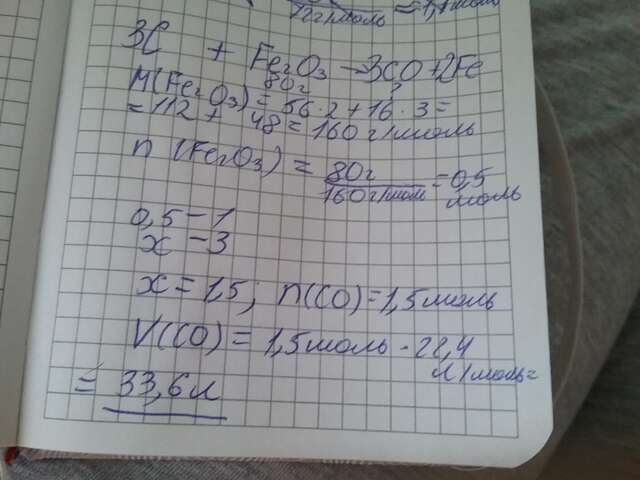 72г/моль
3C + Fe₂O₃ → 3CO + 2Fe
80г ?
M(Fe₂O₃) = 56·2+16·3=
=112 + 48 = 160 г/моль
n (Fe₂O₃) = 80г/160 г/моль = 0,5 моль
0,5 – 1
x – 3
x = 1,5; n(CO)=1,5моль
V(CO) = 1,5моль · 22,4 л/моль=
= 33,6л